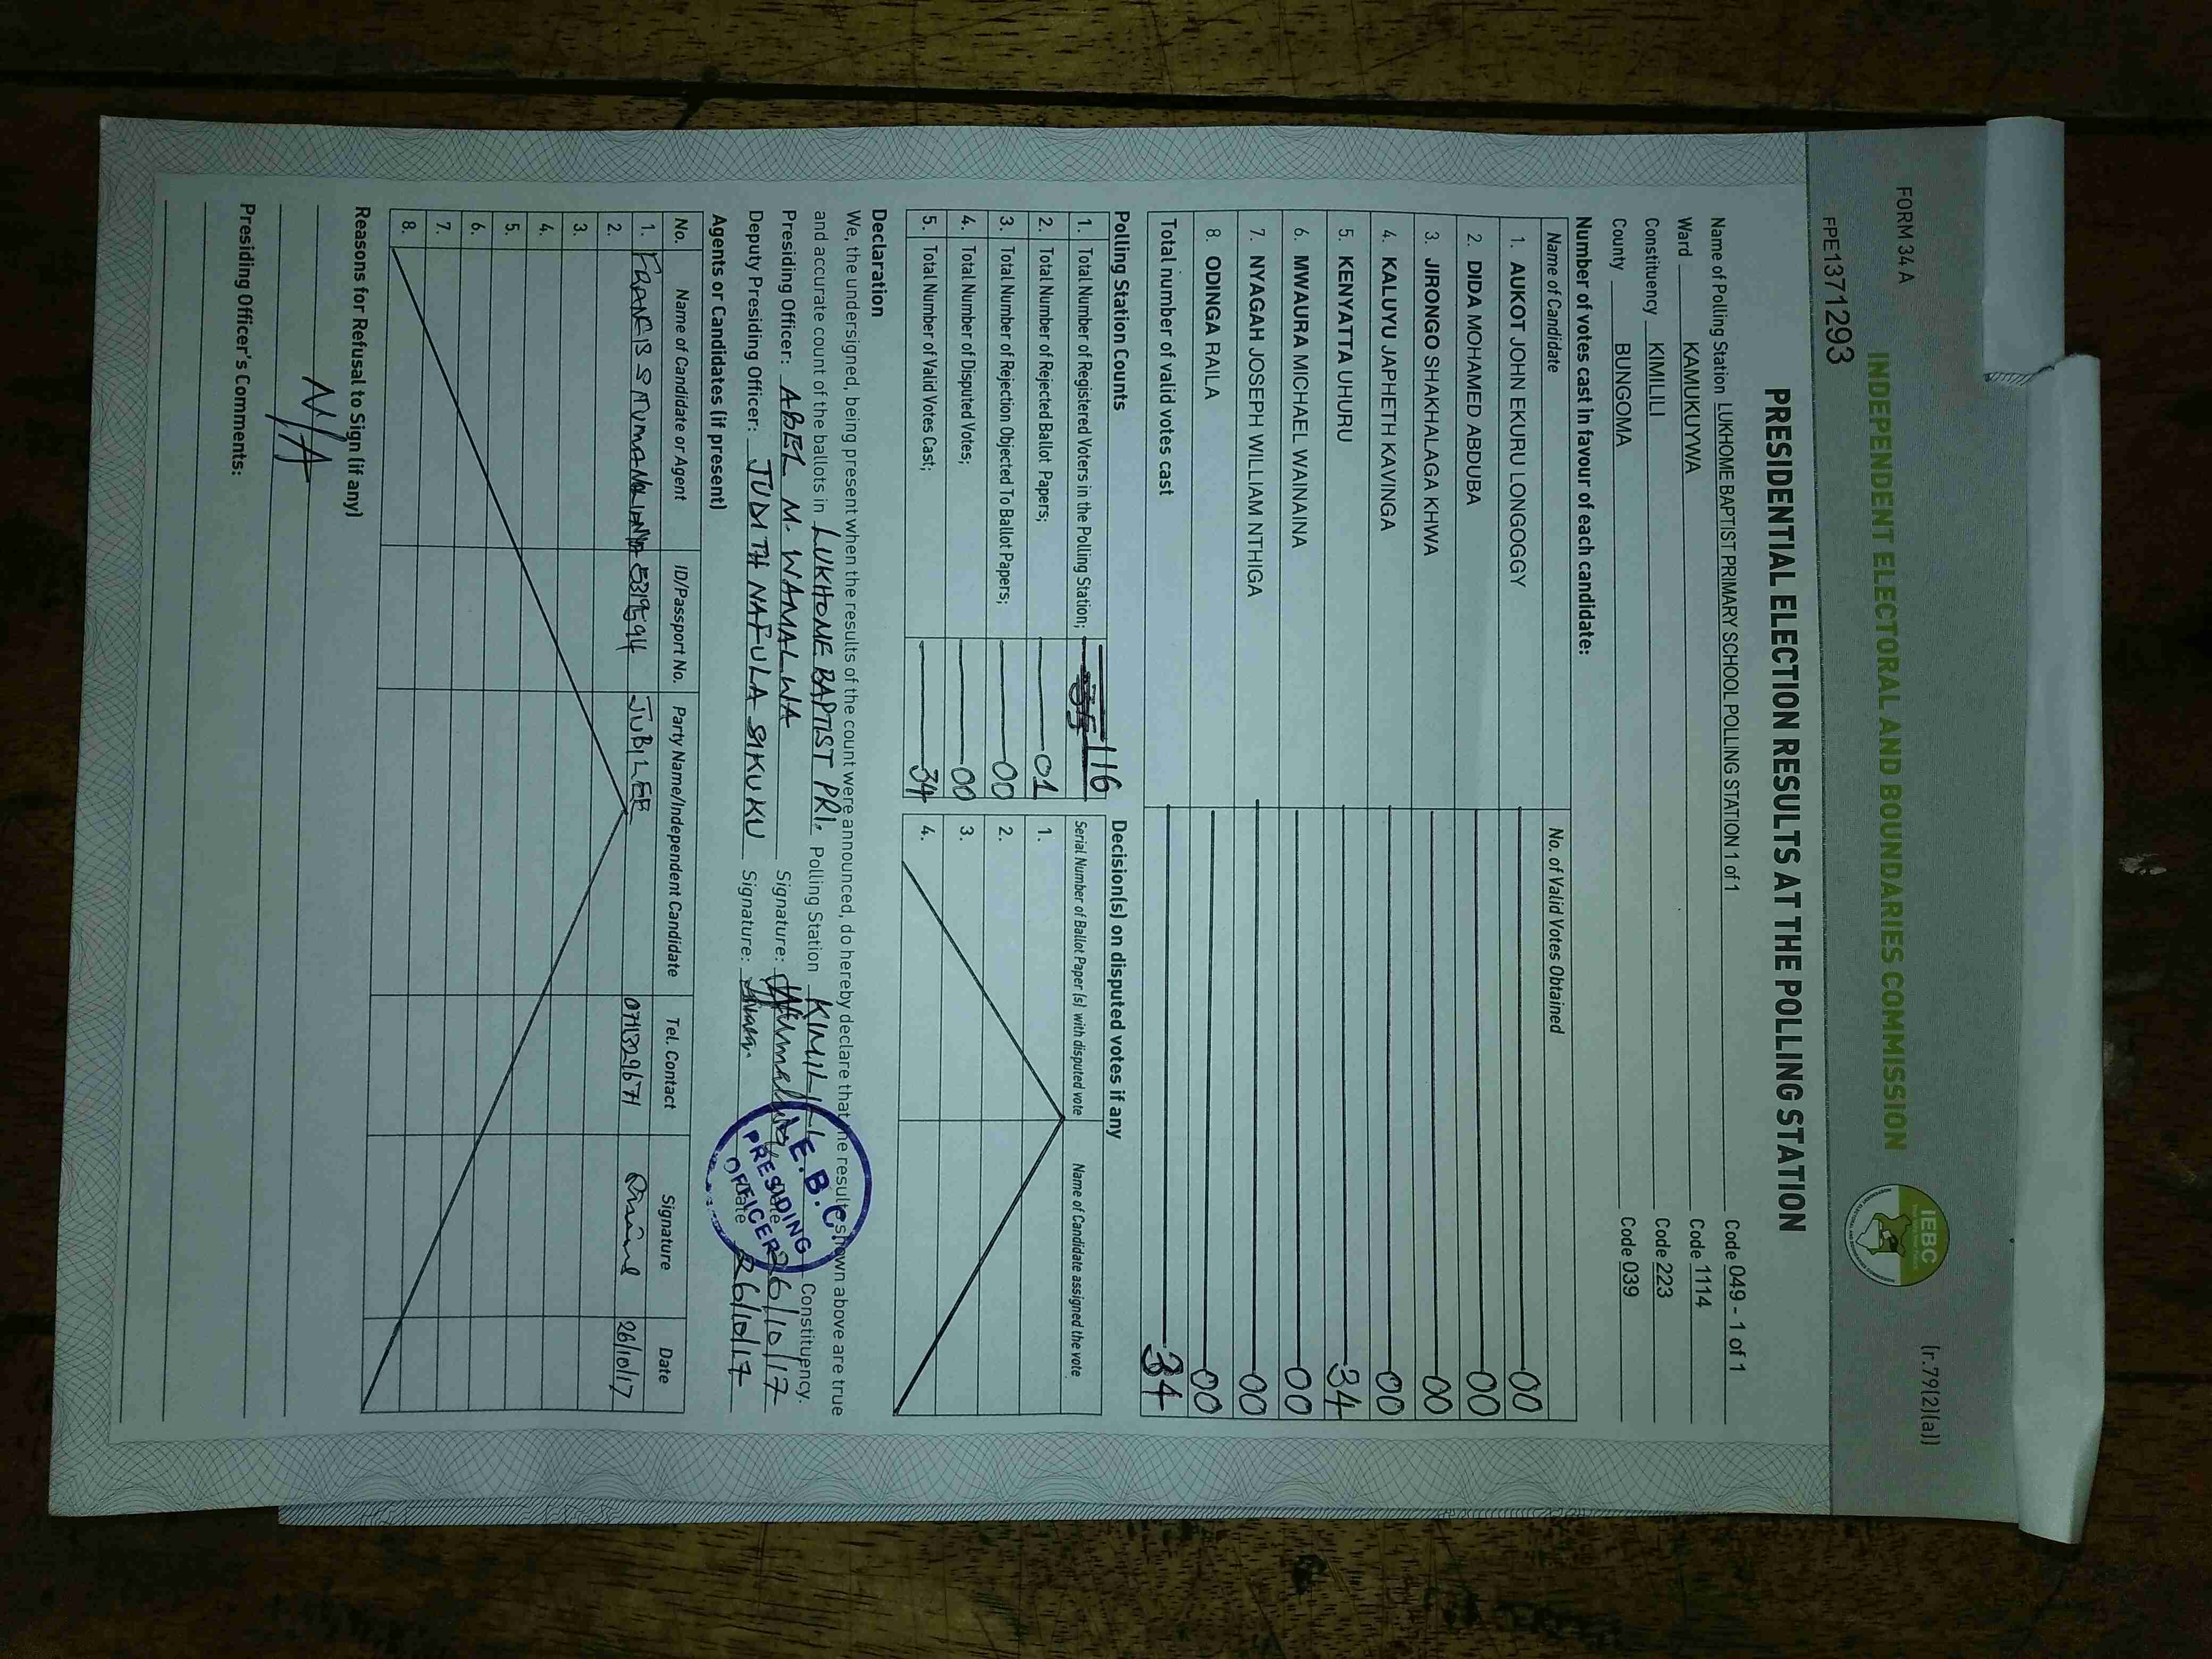 FORM 34 A
(r.79(2)(a))
INDEPENDENT ELECTORAL AND BOUNDARIES COMMISSION
IEBC
FPE1371293
PRESIDENTIAL ELECTION RESULTS AT THE POLLING STATION
Name of Polling Station LUKHOME BAPTIST PRIMARY SCHOOL POLLING STATION 1 of 1 Code 049 - 1 of 1
Ward KAMUKUYWA Code 1114
Constituency KIMILILI Code 223
County BUNGOMA Code 039
Number of votes cast in favour of each candidate:
Name of Candidate No. of Valid Votes Obtained
1. AUKOT JOHN EKURU LONGOGGY 00
2. DIDA MOHAMED ABDUBA 00
3. JIRONGO SHAKHALAGA KHWA 00
4. KALUYU JAPHETH KAVINGA 00
5. KENYATTA UHURU 34
6. MWAURA MICHAEL WAINAINA 00
7. NYAGAH JOSEPH WILLIAM NTHIGA 00
8. ODINGA RAILA 00
Total number of valid votes cast 34
Polling Station Counts
1. Total Number of Registered Voters in the Polling Station; 116
2. Total Number of Rejected Ballot Papers; 01
3. Total Number of Rejection Objected To Ballot Papers; 00
4. Total Number of Disputed Votes; 00
5. Total Number of Valid Votes Cast; 34
Decision(s) on disputed votes if any
Serial Number of Ballot Paper (s) with disputed vote Name of Candidate assigned the vote
1.
2.
3.
4.
Declaration
We, the undersigned, being present when the results of the count were announced, do hereby declare that the results shown above are true
and accurate count of the ballots in LUKHOME BAPTIST PRI. Polling Station KIMILILI Constituency.
Presiding Officer: ABEL M. WAMALWA Signature: Date 26/10/17
Deputy Presiding Officer: JUDITH NAFULA SIKUKU Signature: Date 26/10/17
I.E.B.C
PRESIDING
OFFICER
Agents or Candidates (if present)
No. Name of Candidate or Agent ID/Passport No. Party Name/Independent Candidate Tel. Contact Signature Date
1. FRANCIS 5319594 JUBILEE 0713329671 26/10/17
2.
3.
4.
5.
6.
7.
8.
Reasons for Refusal to Sign (if any)
N/A
Presiding Officer's Comments: